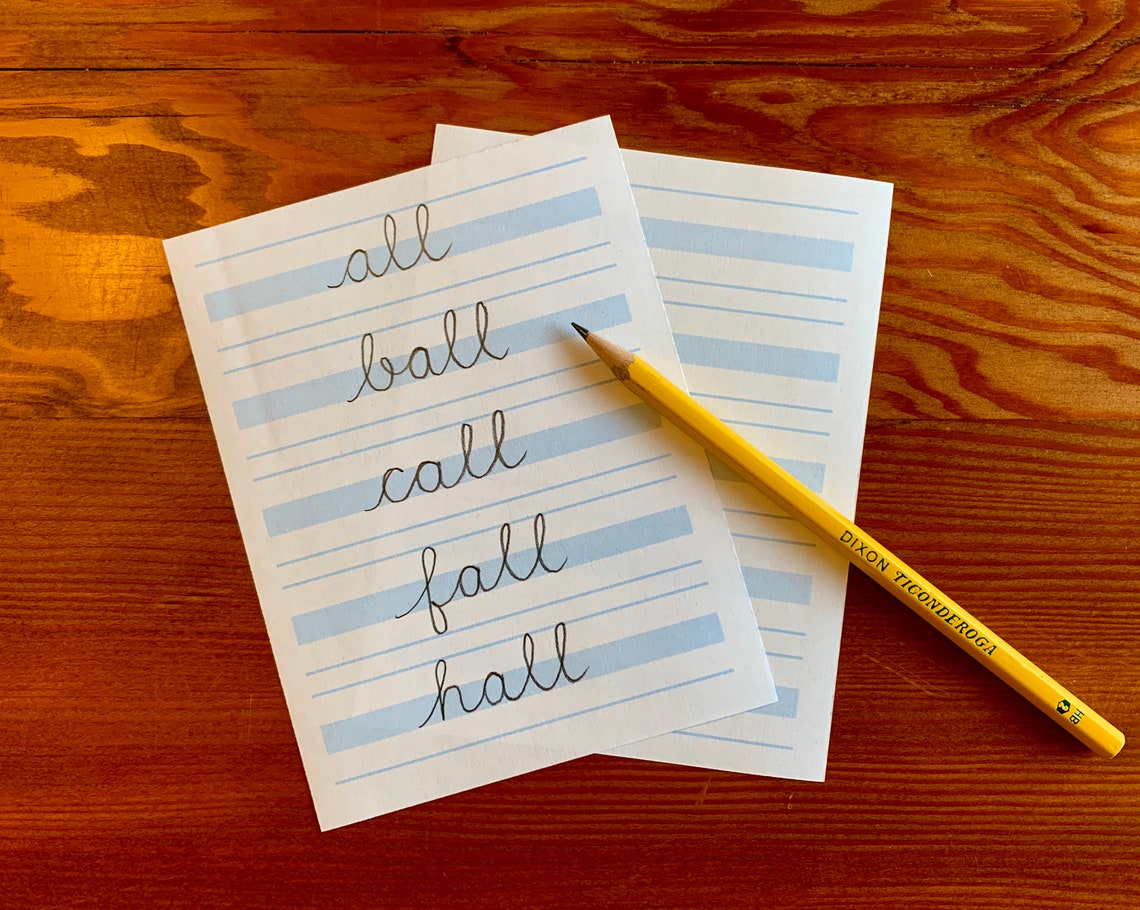 all
ball
call
fall
hall
DIXON TICONDEROGA HB